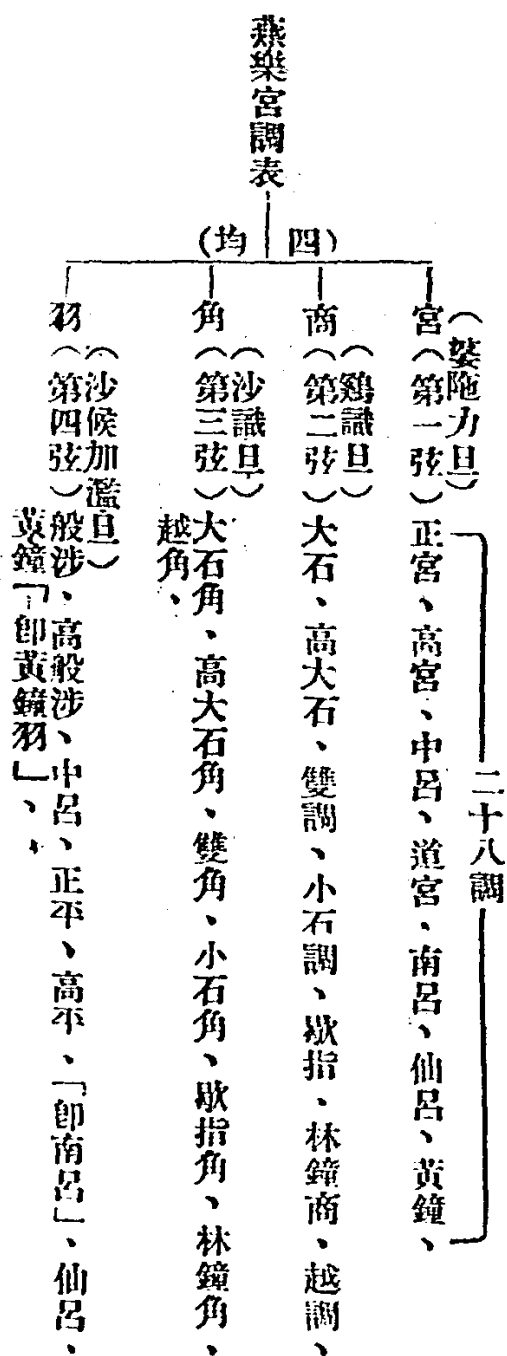 燕樂宮調表
（四均）
二十八調
（婆陁力旦）
宮（第一弦）正宮、高宮、中呂、道宮、南呂、仙呂、黃鐘、
（鷄識旦）
商（第二弦）大石、高大石、雙調、小石調、歇指、林鐘商、越調、
（沙識旦）
角（第三弦）大石角、高大石角、雙角、小石角、歇指角、林鐘角、
越角、
（沙候加濫旦）
羽（第四弦）般涉、高般涉、中呂、正平、高平、「卽南呂」、仙呂、
黃鐘「卽黃鐘羽」、